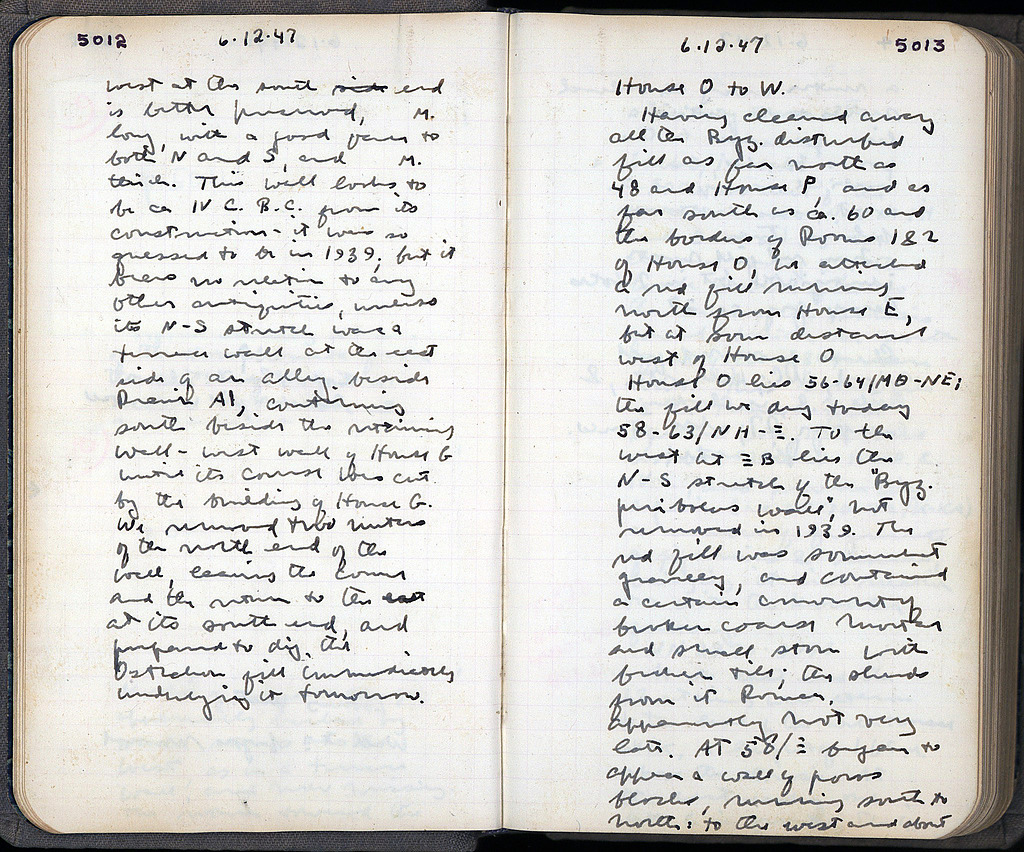 5012
6·12·47
west at the south side end
is better preserved, M.
long, with a good face to
both N and S, and M.
thick. This wall looks to
be ca IV C. B.C. from its
construction - it was so
guessed to be in 1939, but it
bears no relation to any
other antiquities, unless
its N-S stretch was a
terrace wall at the east
side of an alley beside
Prewin A1, continuing
south beside the retaining
wall - west wall of House G
until its course was cut
by the building of House G.
We removed two meters
of the north end of the
wall, leaving the corner
and the return to the east
at its south end, and
prepared to dig the
Ostrakon fill immediately
underlying it tomorrow.
6·12·47
5013
House O to W.
Having cleared away
all the Byz. disturbed
fill as far north as
48 and House P, and as
far south as ca. 60 and
the borders of Rooms 1 & 2
of House O, we attacked
a red fill running
north from House E,
but at some distance
west of House O
House O lies 56-64/ΜΘ-ΝΕ;
the fill we dug today
58-63/ΝΗ-Ξ. To the
west at ΞΒ lies the
N-S stretch of the "Byz.
peribolos wall", not
removed in 1939. The
red fill was somewhat
gravelly, and contained
a certain amount of
broken coarse mortar
and small stones with
broken tile; the sherds
from it Roman,
apparently not very
late. At 58/Ξ began to
appear a wall of poros
blocks, running south to
north: to the west and about